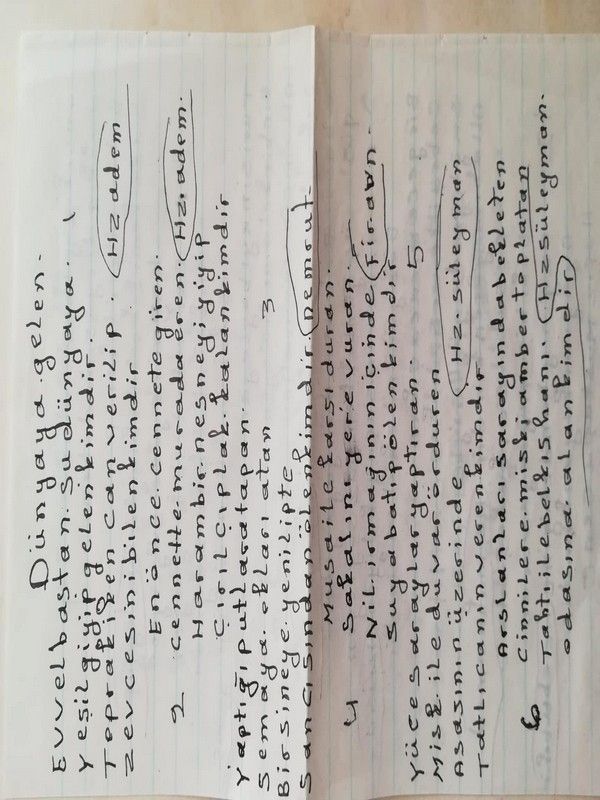 Dünyaya gelen.
Evvelbaştan şu dünyaya. 1
Yeşilgiyip gelenkimdir.
Toprakiken canverilip. Hz adem
zevcesinibilenkimdir
Enönce cennetegiren.
2 cennette muradaeren. Hz. adem.
Harambirnesneyiyiyip
Çırılçıplak kalankimdir
Yaptığıputlaratapan.
Semaya okları atan 3
Birsineye yenilipte
Sancısındanölenkimdir nemrut.
Musaile karsıduran.
4 Sakalını yerıe vuran.
Nil ırmağınıniçinde Firavn.
Suyabatıpölenkimdir
Yüce saraylaryaptıran. 5
Misk ile duvarördüren
Asasının üzerinde Hz. süleyman
Tatlıcanınverenkimdir
Arslanları sarayındabekleten
6 Cinnilere.miskiambertoplatan
Tahtıilebelkıshanı. Hzsüleyman.
odasına alankimdir